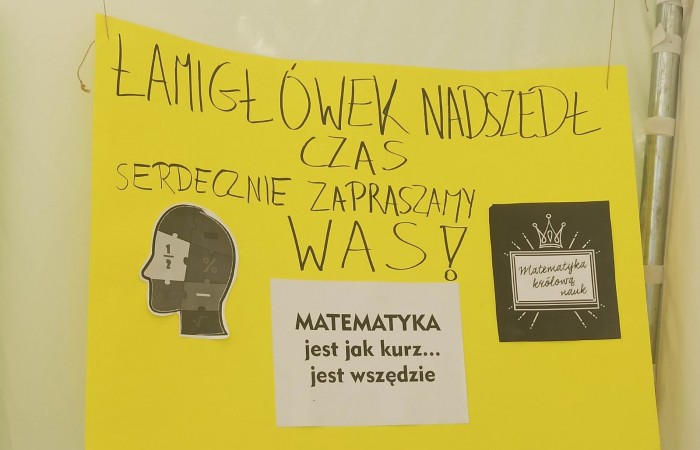 ŁAMIGŁÓWEK NADSZEDŁ
CZAS
SERDECZNIE ZAPRASZAMY
WAS!
1
2
%
−
√
MATEMATYKA
jest jak kurz...
jest wszędzie
Matematyka
królową
nauk